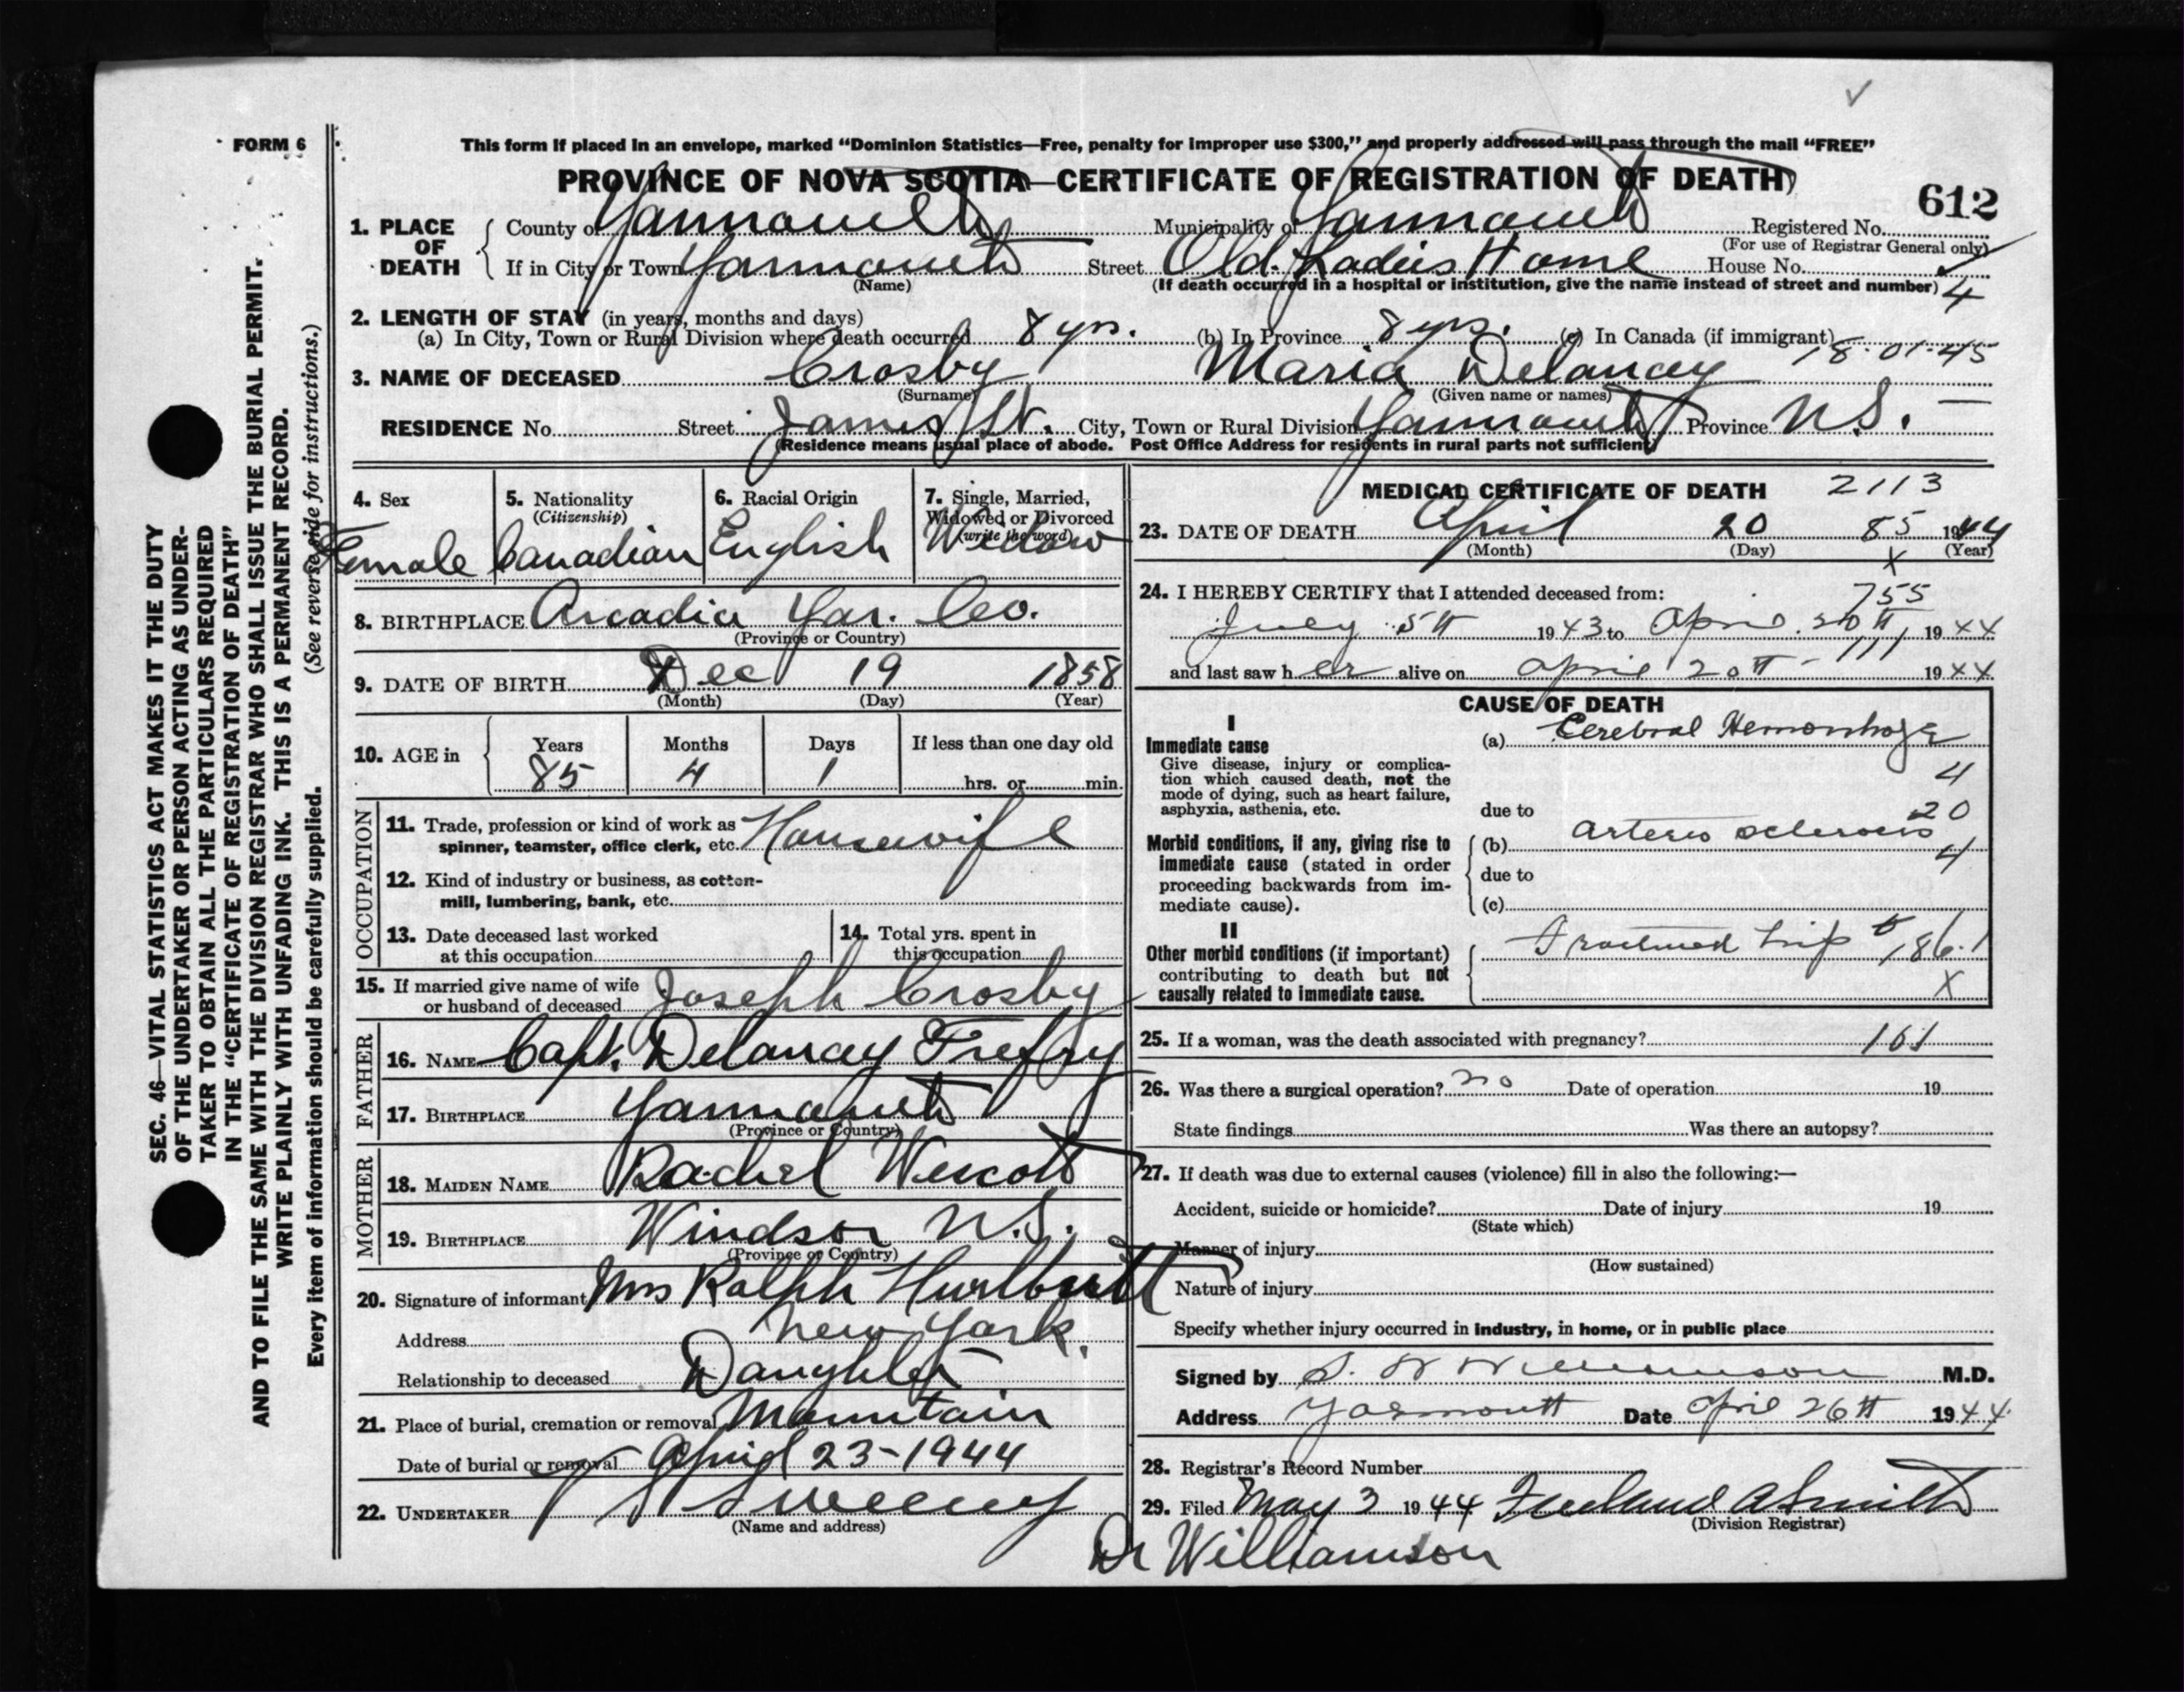 FORM 6
This form if placed in an envelope, marked "Dominion Statistics—Free, penalty for improper use $300," and properly addressed will pass through the mail "FREE"
PROVINCE OF NOVA SCOTIA—CERTIFICATE OF REGISTRATION OF DEATH
612
1. PLACE OF DEATH
County of Yarmouth Municipality of Yarmouth Registered No.
(For use of Registrar General only)
If in City or Town Yarmouth Street Old Ladies Home House No.
(Name) (If death occurred in a hospital or institution, give the name instead of street and number) 4
2. LENGTH OF STAY (in years, months and days)
(a) In City, Town or Rural Division where death occurred 8 yrs. (b) In Province 8 yrs. (c) In Canada (if immigrant)
18-01-45
3. NAME OF DECEASED Crosby Maria Delancey
(Surname) (Given name or names)
RESIDENCE No. Street James St. City, Town or Rural Division Yarmouth Province N.S.
(Residence means usual place of abode. Post Office Address for residents in rural parts not sufficient)
4. Sex
Female
5. Nationality
(Citizenship)
Canadian
6. Racial Origin
English
7. Single, Married,
Widowed or Divorced
(write the word)
Widow
8. BIRTHPLACE Arcadia Yar. Co.
(Province or Country)
9. DATE OF BIRTH Dec 19 1858
(Month) (Day) (Year)
10. AGE in
Years Months Days If less than one day old
85 4 1 hrs. or min.
OCCUPATION
11. Trade, profession or kind of work as
spinner, teamster, office clerk, etc. Housewife
12. Kind of industry or business, as cotton-
mill, lumbering, bank, etc.
13. Date deceased last worked
at this occupation
14. Total yrs. spent in
this occupation
15. If married give name of wife
or husband of deceased Joseph Crosby
FATHER
16. NAME Capt. Delancey Trefry
17. BIRTHPLACE Yarmouth
(Province or Country)
MOTHER
18. MAIDEN NAME Rachel Wescott
19. BIRTHPLACE Windsor N.S.
(Province or Country)
20. Signature of informant Mrs Ralph Hurlburtt
Address New York.
Relationship to deceased Daughter
21. Place of burial, cremation or removal Mountain
Date of burial or removal April 23-1944
22. UNDERTAKER Sweeny
(Name and address)
MEDICAL CERTIFICATE OF DEATH 2113
23. DATE OF DEATH April 20 85 1944
(Month) (Day) x (Year)
24. I HEREBY CERTIFY that I attended deceased from: 755
July 5th 1943 to April 20th, 1944
111
and last saw her alive on April 20th 1944
CAUSE OF DEATH
I
Immediate cause
Give disease, injury or complica-
tion which caused death, not the
mode of dying, such as heart failure,
asphyxia, asthenia, etc.
(a) Cerebral Hemorrhage
4
due to
20
Morbid conditions, if any, giving rise to
immediate cause (stated in order
proceeding backwards from im-
mediate cause).
(b) Arterio sclerosis
4
due to
(c)
II
Other morbid conditions (if important)
contributing to death but not
causally related to immediate cause.
Fractured hip 186.1
X
25. If a woman, was the death associated with pregnancy? 161
26. Was there a surgical operation? no Date of operation 19
State findings Was there an autopsy?
27. If death was due to external causes (violence) fill in also the following:—
Accident, suicide or homicide? Date of injury 19
(State which)
Manner of injury
(How sustained)
Nature of injury
Specify whether injury occurred in industry, in home, or in public place
Signed by S. W Williamson M.D.
Address Yarmouth Date April 26th 1944.
28. Registrar's Record Number
29. Filed May 3 1944 Freeland A Smith
(Division Registrar)
Dr Williamson
SEC. 46—VITAL STATISTICS ACT MAKES IT THE DUTY
OF THE UNDERTAKER OR PERSON ACTING AS UNDER-
TAKER TO OBTAIN ALL THE PARTICULARS REQUIRED
IN THE "CERTIFICATE OF REGISTRATION OF DEATH"
AND TO FILE THE SAME WITH THE DIVISION REGISTRAR WHO SHALL ISSUE THE BURIAL PERMIT.
WRITE PLAINLY WITH UNFADING INK. THIS IS A PERMANENT RECORD.
Every item of information should be carefully supplied. (See reverse side for instructions.)